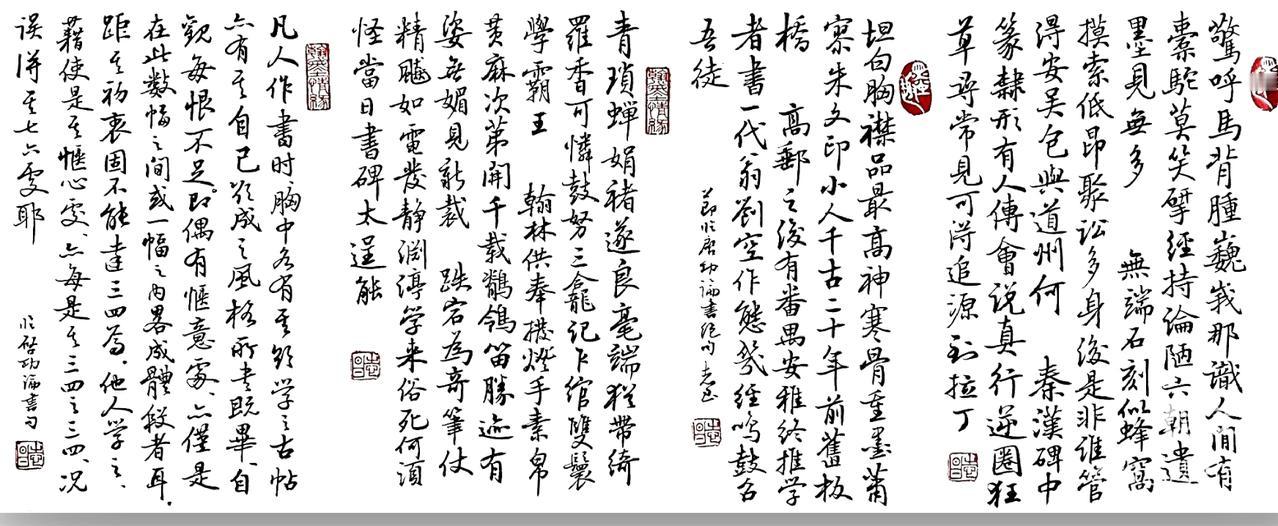 驚呼馬背腫巍峩那識人間有
橐駝莫笑擘經持論陋六朝遺
墨見無多 無端石刻似蜂窩
摸索低昂聚訟多身後是非誰管
得安吴包與道州何 秦漢碑中
篆隸形有人傅會说真行逆圈狂
草尋常見可得追源到拉丁
坦白胸襟品最高神寒骨重墨蕭
寥朱文印小人千古二十年前舊板
橋 高郵之後有番禺安雅终推学
者書一代翁劉空作態幾經鳴鼓召
吾徒
節临启功論書絶句
青瑣蟬娟褚遂良毫端猶帶綺
羅香可憐鼓努三龕記乍綰雙鬟
學霸王 翰林供奉撥燈手素帛
黄麻次第開千载鶺鴒留勝迹有
姿無媚見新裁 跌宕為奇筆仗
精飈如電發静淵渟学来俗死何須
怪當日書碑太逞能
凡人作書时胸中各有其欲学之古帖
亦有其自己欲成之風格所書既畢自
觀每恨不足即偶有愜意處、亦僅是
在此數幅之間或一幅之内畧成體段者耳.
距其初衷固不能達三四焉.他人学之、
藉使是其愜心處、亦每是其三四之三四、况
误得其七六處耶
临启功論書句